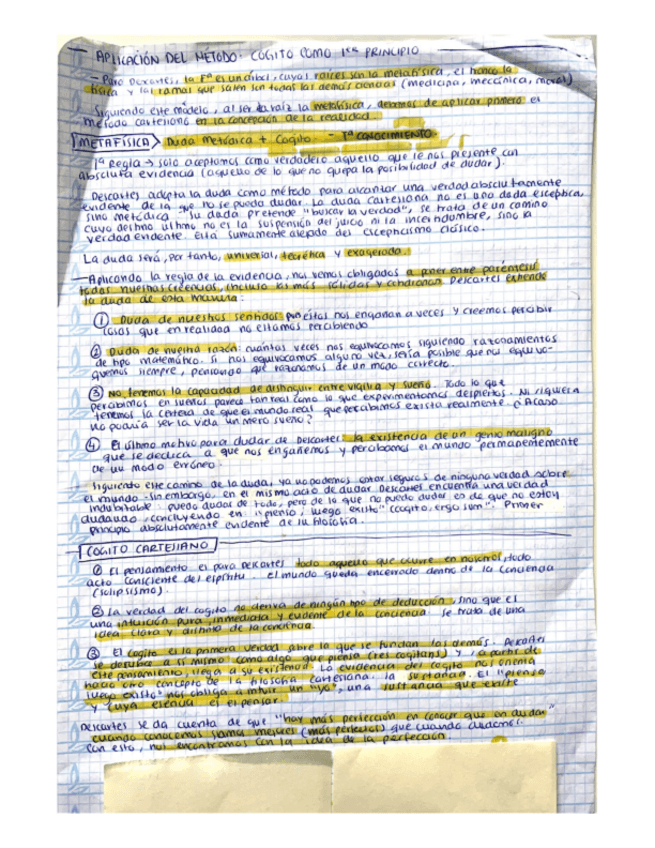 APLICACIÓN DEL MÉTODO: COGITO COMO 1ER PRINCIPIO
- Para Descartes, la Fª es un árbol, cuyas raíces son la metafísica, el tronco la
física y las ramas que salen son todas las demás ciencias (medicina, mecánica, moral)
Siguiendo este modelo, al ser la raíz la metafísica, debemos de aplicar primero el
método cartesiano en la concepción de la realidad.
METAFÍSICA Duda Metódica + Cogito - Tª CONOCIMIENTO
1ª Regla → solo aceptamos como verdadero aquello que se nos presente con
absoluta evidencia (aquello de lo que no quepa la posibilidad de dudar).
Descartes adopta la duda como método para alcanzar una verdad absolutamente
evidente de la que no se pueda dudar. La duda cartesiana no es una duda escéptica,
sino metódica. Su duda pretende "buscar la verdad", se trata de un camino
cuyo destino último no es la suspensión del juicio ni la incertidumbre, sino la
verdad evidente. Está sumamente alejado del escepticismo clásico.
La duda será, por tanto, universal, teorética y exagerada.
- Aplicando la regla de la evidencia, nos vemos obligados a poner entre paréntesis
todas nuestras creencias, incluso las más sólidas y cotidianas. Descartes extiende
la duda de esta manera:
① Duda de nuestros sentidos pues éstos nos engañan a veces y creemos percibir
cosas que en realidad no estamos percibiendo
② Duda de nuestra razón: cuántas veces nos equivocamos siguiendo razonamientos
de tipo matemático. Si nos equivocamos alguna vez, sería posible que nos equivo-
quemos siempre, pensando que razonamos de un modo correcto.
③ No tenemos la capacidad de distinguir entre vigilia y sueño. Todo lo que
percibimos en sueños parece tan real como lo que experimentamos despiertos. Ni siquiera
tenemos la certeza de que el mundo real que percibimos exista realmente. ¿Acaso
no podría ser la vida un mero sueño?
④ El último motivo para dudar de Descartes: la existencia de un genio maligno
que se dedica a que nos engañemos y percibamos el mundo permanentemente
de un modo erróneo.
Siguiendo este camino de la duda, ya no podemos estar seguros de ninguna verdad sobre
el mundo. Sin embargo, en el mismo acto de dudar Descartes encuentra una verdad
indubitable: puedo dudar de todo, pero de lo que no puedo dudar es de que no estoy
dudando, concluyendo en "pienso, luego existo" (cogito, ergo sum". Primer
principio absolutamente evidente de su filosofía.
COGITO CARTESIANO
① El pensamiento es para Descartes todo aquello que ocurre en nosotros, todo
acto consciente del espíritu. El mundo queda encerrado dentro de la conciencia
(solipsismo).
② La verdad del cogito no deriva de ningún tipo de deducción, sino que es
una intuición pura, inmediata y evidente de la conciencia. Se trata de una
idea clara y distinta de la conciencia.
③ El cogito es la primera verdad sobre la que se fundan las demás. Descartes
se descubre a sí mismo como algo que piensa (res cogitans) y, a partir de
este pensamiento, llega a su existencia. La evidencia del cogito nos orienta
hacia otro concepto de la filosofía cartesiana: la sustancia. El "pienso
luego existo" nos obliga a intuir un "yo", una sustancia que existe
y cuya esencia es el pensar.
Descartes se da cuenta de que "hay más perfección en conocer que en dudar"
cuando conocemos somos mejores (más perfectos) que cuando dudamos.
Con esto, nos encontramos con la idea de la perfección.